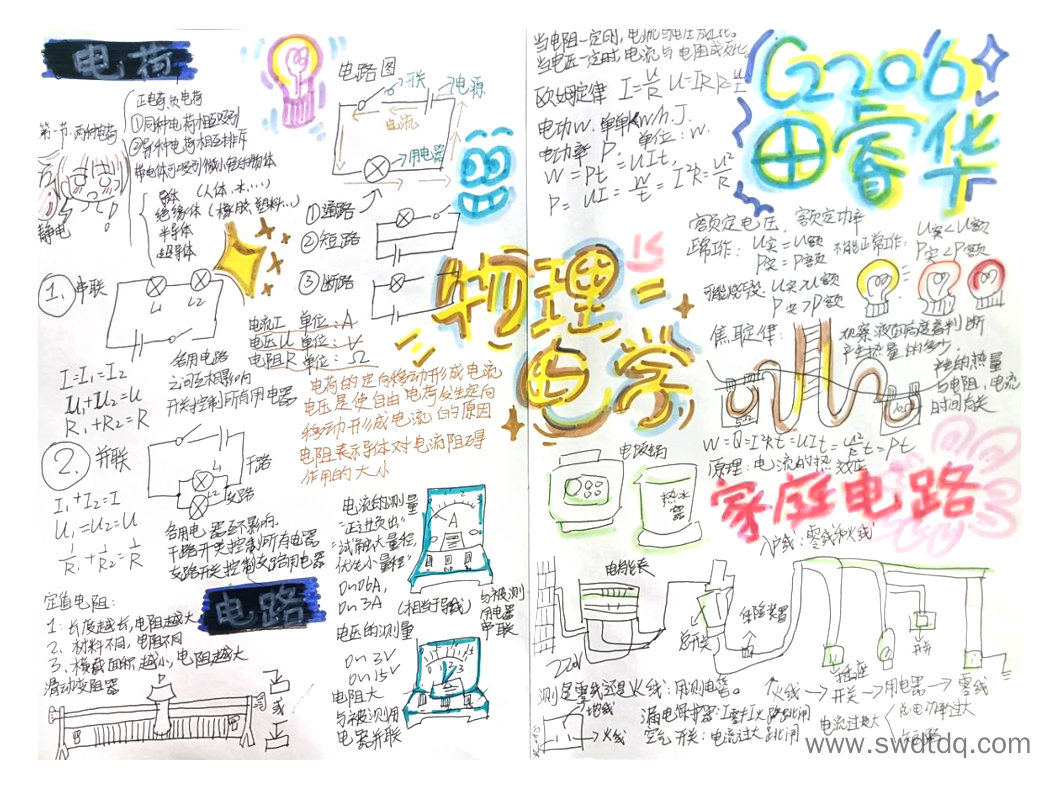 电荷
正电荷,负电荷
第一节:两种电荷
①同种电荷相互吸引
②异种电荷相互排斥
带电体可吸引微小轻的物体
导体 (人体.水....)
绝缘体 (橡胶,塑料...)
半导体
超导体
静电
电路图
开关
电源
电流
用电器
①通路
②短路
③断路
1. 串联
L1
L2
I=I1=I2
U1+U2=U
R1+R2=R
各用电路
之间互相影响
开关控制所有用电器
电流I 单位:A
电压U 单位:V
电阻R 单位:Ω
电荷的定向移动形成电流
电压是使自由电荷发生定向
移动形成电流的原因
电阻表示导体对电流阻碍
作用的大小
2. 并联
干路
L1
L2
支路
I1+I2=I
U1=U2=U
1/R1+1/R2=1/R
各用电器互不影响.
干路开关控制所有电器
支路开关控制支路用电器
电路
定值电阻:
1:长度越长,电阻越大
2、材料不同,电阻不同
3、横截面积越小,电阻越大
滑动变阻器
或
电流的测量
"正进负出"
"试触大量程,
优先小量程"
0~0.6A,
0~3A
(相当于导线)
与被测
用电器
串联
A
电压的测量
0~3V
0~15V
电阻大
与被测用
电器并联
物理
电学
当电阻一定时,电流与电压成正比。
当电压一定时,电流与电阻成反比。
欧姆定律 I=U/R U=IR R=U/I
电功W.单
kw/h.J.
电功率 P, 单位:w.
W=Pt=UIt,
P=UI=W/t=I²R=U²/R
G2206
田睿华
额定电压,额定功率
正常工作:U实=U额
P实=P额
不能正常工作:U实<U额
P实<P额
可能烧毁:U实>U额
P实>P额
焦耳定律:
观察液面高度差判断
产生热量的多少,
与电阻,电流
时间有关
5Ω
W=Q=I²Rt=UIt=U²/R t=Pt
原理:电流的热效应
电饭锅
热水
器
家庭电路
入户线:零线和火线
电能表
220V
总开关
保险装置
插座
开关
测是零线还是火线:用测电笔。
火线→开关→用电器→零线
地线
火线
漏电保护器:I零≠I火 跳闸
空气开关:电流过大跳闸
电流过大
总电功率过大
短路
www.swdtdq.com